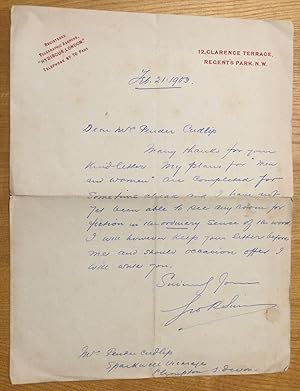 REGISTERED
TELEGRAPHIC ADDRESS,
TELEPHONE 97 TO PADD
12, CLARENCE TERRACE,
REGENT'S PARK. N.W.
Feb. 21. 1903.
Dear Mrs Pender Cudlip
Many thanks for your
kind letter My plans for "Men
and Women" are completed for
sometime ahead and I have not
yet been able to see any room for
fiction in the ordinary sense of the word
I will however keep your letter before
me and should occasion offer I
will write you.
Sincerely Yours
Geo R Sims
Mrs Pender Cudlip
Sparkwell Vicarage
Plympton S. Devon